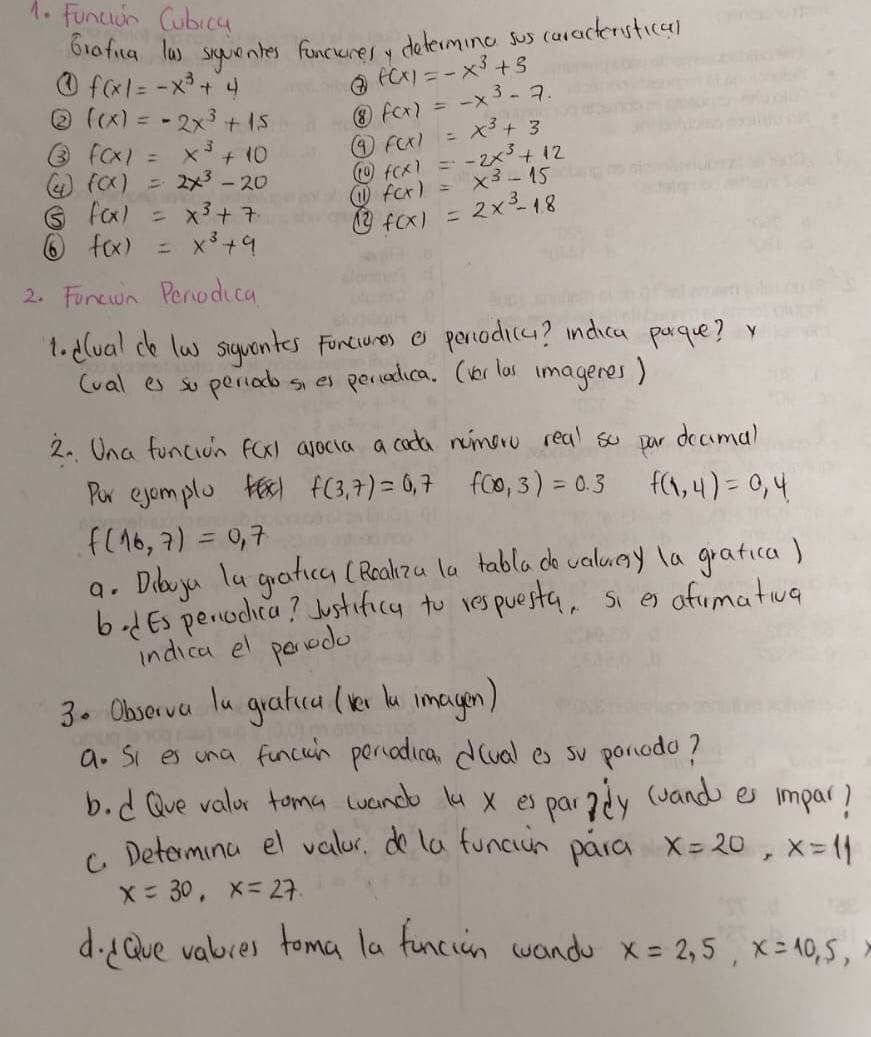 1. Función Cubica
Grafica las siguientes funciones y determina sus caracteristicas
① f(x) = -x³ + 4
② f(x) = -2x³ + 15
③ f(x) = x³ + 10
④ f(x) = 2x³ - 20
⑤ f(x) = x³ + 7
⑥ f(x) = x³ + 9
⑦ f(x) = -x³ + 3
⑧ f(x) = -x³ - 7.
⑨ f(x) = x³ + 3
⑩ f(x) = -2x³ + 12
⑪ f(x) = x³ - 15
⑫ f(x) = 2x³ - 18
2. Función Periodica
1. ¿Cual de las siguientes Funciones es periodica? indica porque? y
Cual es su periodo si es periodica. (ver las imagenes)
2. Una función f(x) asocia a cada número real su par decimal
Por ejemplo f(3,7) = 0,7 f(0,3) = 0.3 f(1,4) = 0,4
f(16,7) = 0,7
a. Dibuja la grafica (Realiza la tabla de valores y la grafica)
b. ¿Es periodica? Justifica tu respuesta, si es afirmativa
indica el periodo
3. Observa la grafica (ver la imagen)
a. Si es una función periodica, ¿Cual es su periodo?
b. ¿Que valor toma cuando la x es par? ¿y cuando es impar?
c. Determina el valor. de la función para x = 20, x = 11
x = 30, x = 27.
d. ¿Que valores toma la función cuando x = 2,5, x = 10,5,